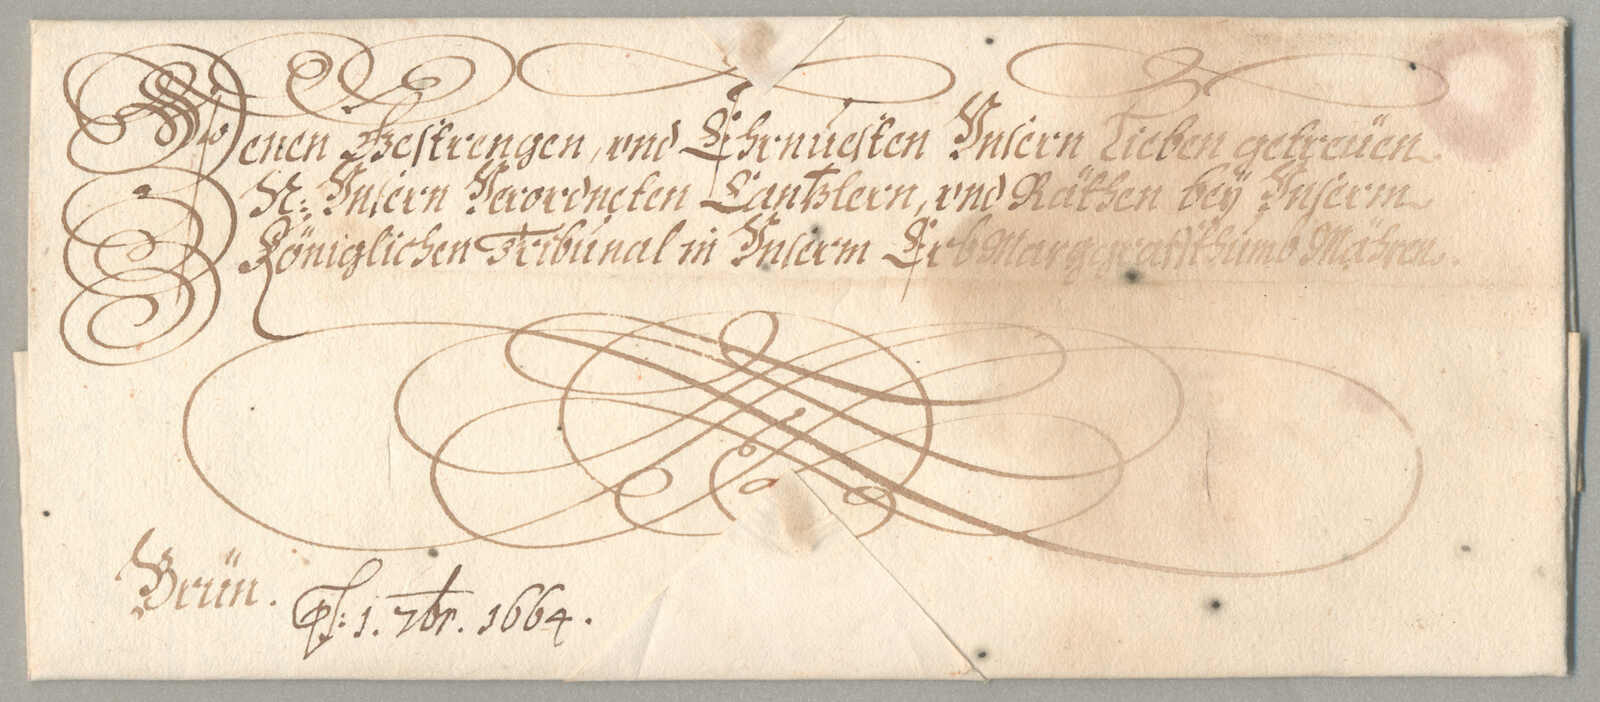 Denen Gestrengen, vnd Ehrnuesten Vnsern Lieben getreüen
N: Vnsern Verordneten Cantzlern, vnd Räthen beÿ Vnserm
Königlichen Tribúnal in Vnserm Erb Marggrafthumb Mähren.
Brün.
1. 7br. 1664.